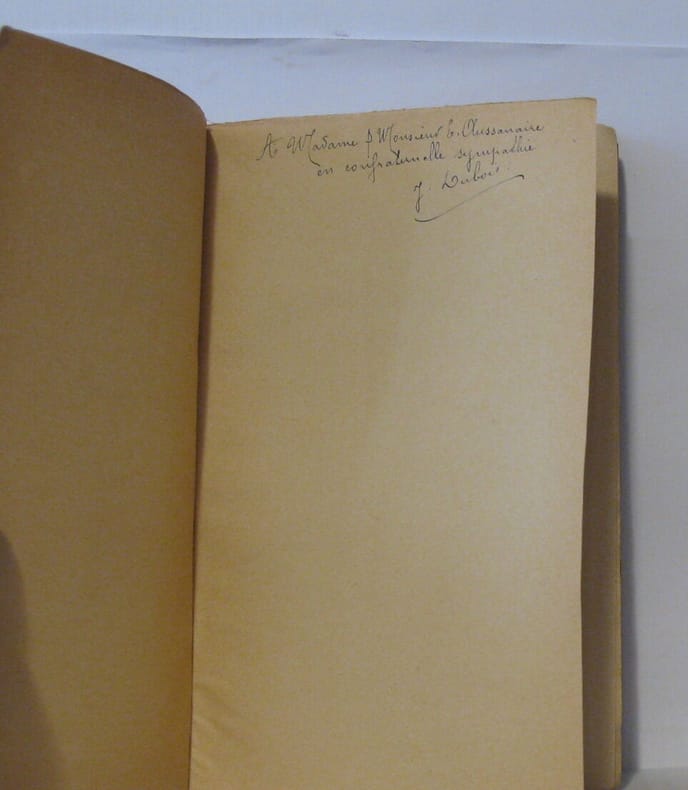 A Madame & Monsieur E. Aussanaire
en confraternelle sympathie
J. Dubois.